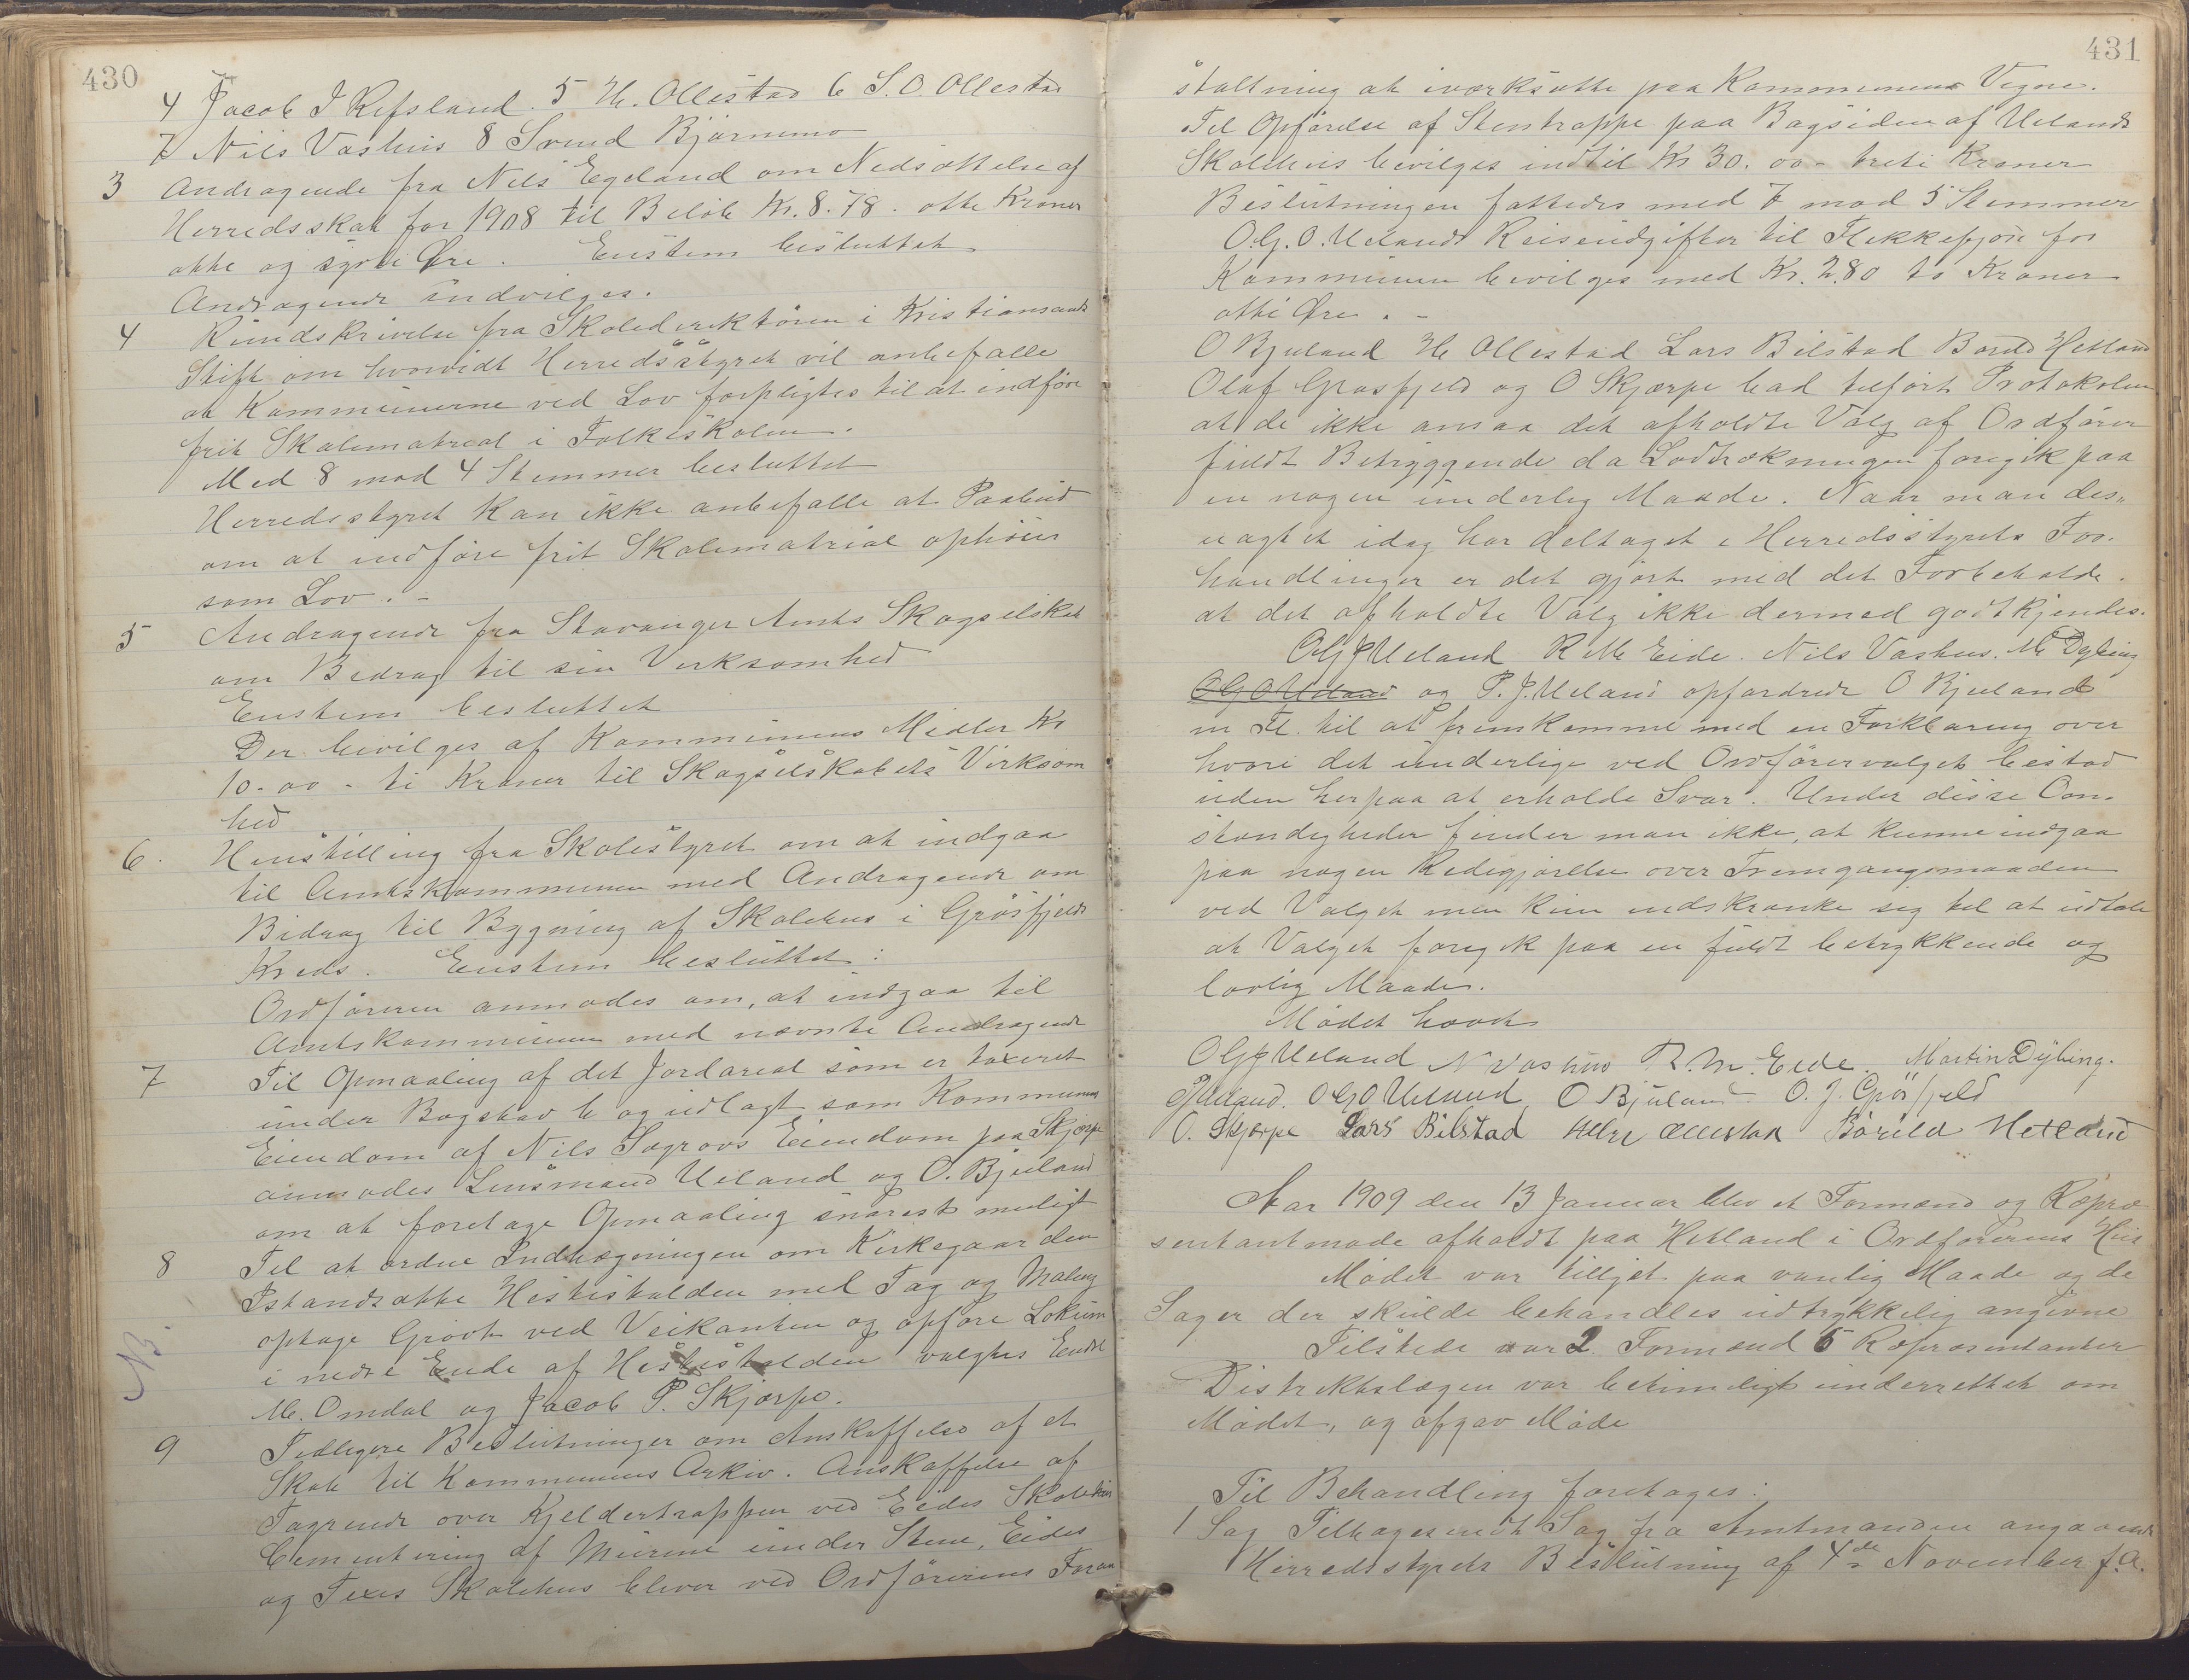 430
4 Jacob I Refsland. 5 H. Ollestad 6 S. O. Ollestad
7 Nils Vashus 8 Svend Bjørnemo
3 Andragende fra Nils Egeland om Nedsættelse af
Herredsskat for 1908 til Beløb Kr. 8.78. otte Kroner
otte og sytti Øre. Enstem besluttet
Andragende indvilges.
4 Rundskrivelse fra Skoledirektøren i Kristiansands
Stift om hvorvidt Herredsstyret vil anbefalle
at Kommunerne ved Lov forpligtes til at indføre
frit Skolematreal i Folkeskolen.
Med 8 mod 4 Stemmer besluttet
Herredsstyret kan ikke anbefalle at Paabud
om at indføre frit Skolematrial ophøies
som Lov. -
5 Andragende fra Stavanger Amts Skogselskab
om Bidrag til sin Virksomhed
Enstem besluttet
Der bevilges af Kommunens Midler Kr
10.00 - ti Kroner til Skogselskabets Virksom
hed
6. Henstilling fra Skolestyret om at indgaa
til Amtskommunen med Andragende om
Bidrag til Bygning af Skolehus i Grøsfjelds
Kreds. Enstem besluttet:
Ordføreren anmodes om, at indgaa til
Amtskommunen med nævnte Andragende
7 Til Opmaaling af det Jordareal som er taxeret
under Bogstav b og udlagt som Kommunens
Eiendom af Nils Sogrovs Eiendom paa Skjerpe
anmodes Lensmand Ueland og O. Bjuland
om at foretage Opmaaling snarest muligt
8 Til at ordne Indhegningen om Kirkegaarden
Istandsætte Hestestalden med Tag og Maling
optage Grøvt ved Veikanten og opføre Lokum
i nedre Ende af Hestestalden valgtes Endre
NB.
M. Omdal og Jacob P. Skjærpe.
9 Tidligere Beslutninger om Anskaffelse af et
Skab til Kommunens Arkiv. Anskaffelse af
Tagrende over Kjeldertrappen ved Eides Skolehus
Cementering af Murene under Stene, Eides
og Texes Skolehus blever ved Ordførerens Foran
431
staltning at iværksætte paa Kommunens Vegne.
Til Opførelse af Stentrappe paa Bagsiden af Uelands
Skolehus bevilges indtil Kr 30.00 - treti Kroner
Beslutningen fattedes med 7 mod 5 Stemmer
O. G. O. Uelands Reiseudgifter til Flekkefjord for
Kommunen bevilges med Kr. 2.80 to Kroner
otti Øre. -
O Bjuland H Ollestad Lars Bilstad Boruld Hetland
Olaf Grøsfjeld og O Skjærpe bad tilført Protokolen
at de ikke ansaa det afholdte Valg af Ordfører
fuldt Betryggende da Lodtrækningen foregik paa
en nogen underlig Maade. Naar man des-
uagtet idag har deltaget i Herredsstyrets For-
handlinger er det gjort med det Forbeholde.
at det afholdte Valg ikke dermed godtkjendes.
O G J Ueland R M Eide. Nils Vashus. M Dybing
O G O Ueland og P. J. Ueland opfordrede O Bjuland
m Fl. til at fremkomme med en Forklaring over
hvori det underlige ved Ordførervalget bestod
uden herpaa at erholde Svar. Under disse Om-
stændigheder finder man ikke, at kunne indgaa
paa nogen Redegjørelse over Fremgangsmaaden
ved Valget men kun indskrænke sig til at udtale
at Valget foregik paa en fuldt betrykkende og
lovlig Maade.
Mødet hævet
O G J Ueland N Vashus R. M. Eide. Martin Dybing.
P J Ueland. O G O Ueland O Bjuland O. J. Grøsfjeld
O. Skjerpe Lars Bilstad Ollestad Boruld Hetland
Aar 1909 den 13 Januar blev et Formænd og Repræ
sentantmøde afholdt paa Hetland i Ordførerens Hus
Mødet var tillyst paa vanlig Maade og de
Sager der skulde behandles udtrykkelig angivne
Tilstede var 2 Formænd 6 Repræsentanter
Distriktslægen var betimeligt underrettet om
Mødet, og afgav Møde
Til Behandling foretages:
1 Sag Tilbagesendt Sag fra Amtmanden angaaende
Herredsstyrets Beslutning af 4de November f. A.